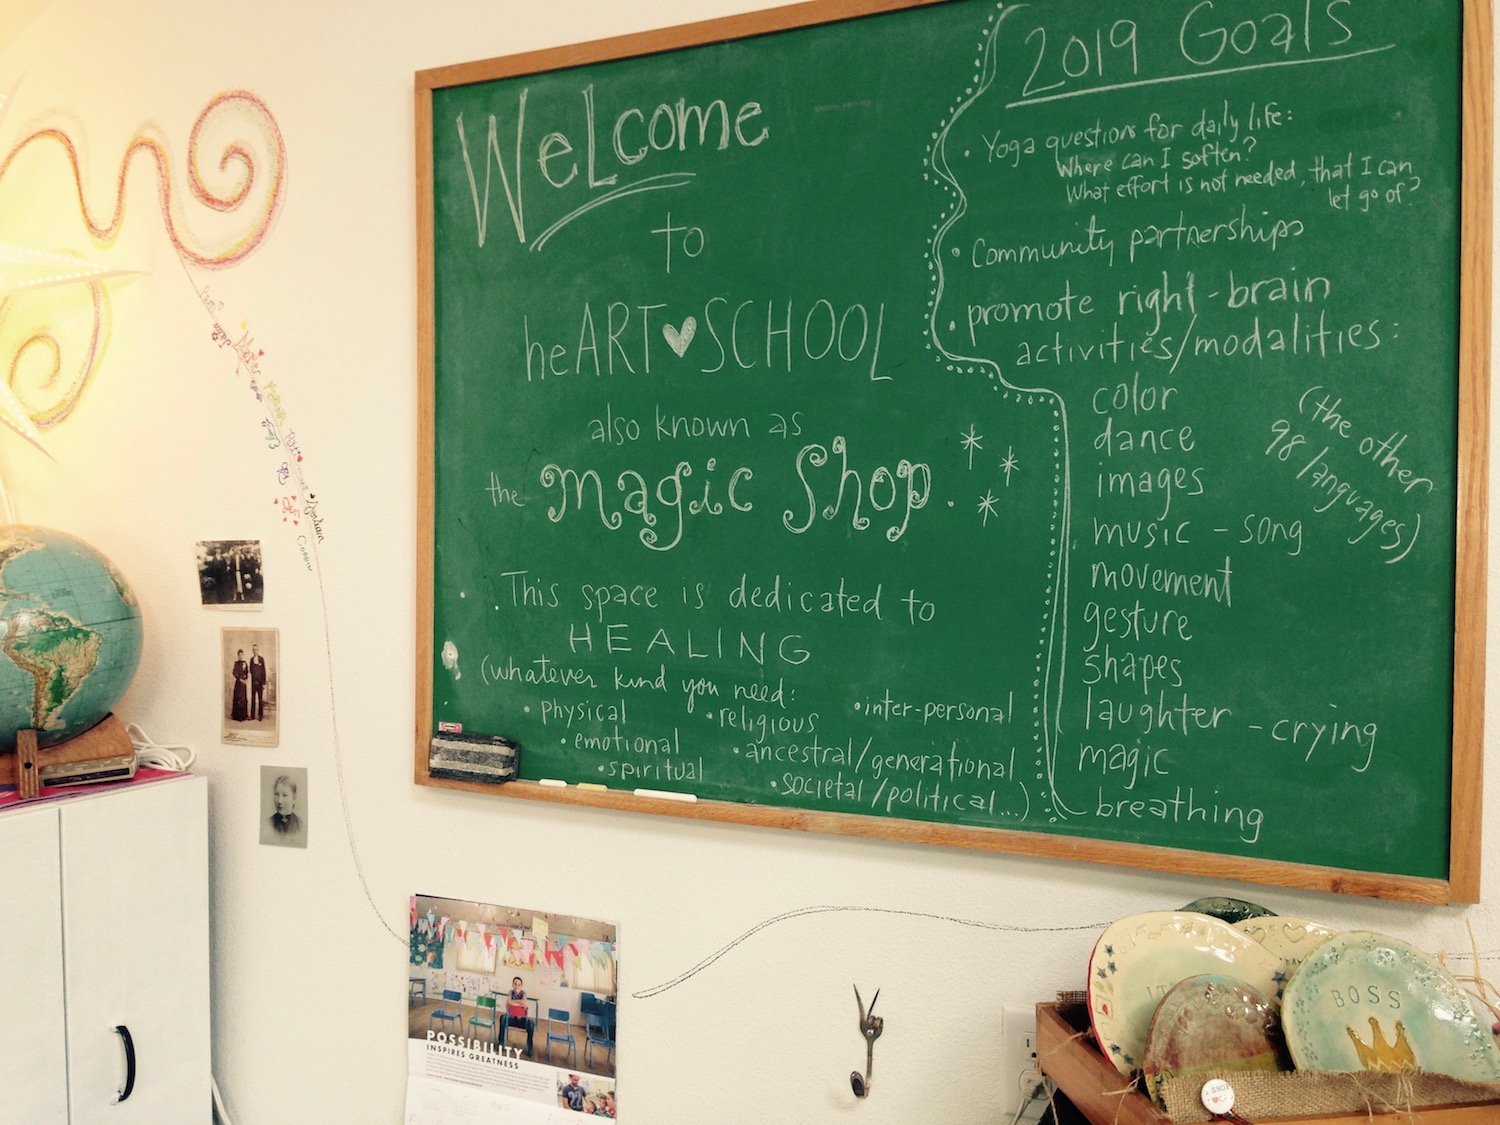 WeLcome
to
heART SCHOOL
also known as
the magic Shop.
This space is dedicated to
HEALING
(whatever kind you need:
• physical
• emotional
• spiritual
• religious
• ancestral/generational
• societal/political...)
• inter-personal
2019 Goals
• Yoga questions for daily life:
Where can I soften?
What effort is not needed, that I can
let go of?
• Community partnerships
• promote right-brain
activities/modalities:
color
dance
images
music - song
movement
gesture
shapes
laughter - crying
magic
breathing
(the other
98 languages)
Jen
Corrow
POSSIBILITY
INSPIRES GREATNESS
BOSS